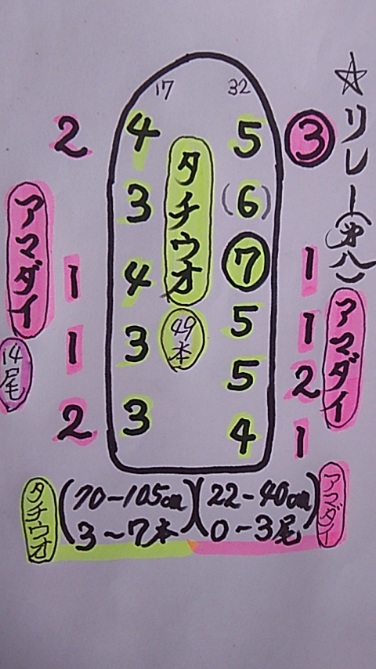 ☆リレー(第八)
17 32
2 4 5 ③
3 (6)
1 4 ⑦ 1
1 3 5 1
5 2
2 3 4 1
タチウオ
49本
アマダイ
14尾
アマダイ
タチウオ (70-105cm 3~7本)
(22-40cm 0-3尾) アマダイ